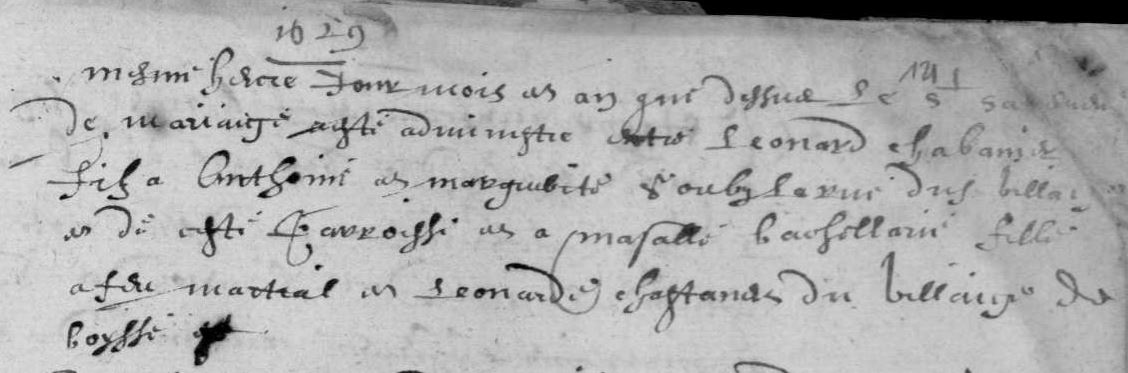 1629
mesme heure Jour mois et an que dessus le St sa
de mariaige a esté administre entre Leonard chabanier
filz a Anthoine et marguerite Soubzlerue dud. villaige
et de ceste parroisse et a masalle bachellerie fille
a feu martial et Leonarde chastanet du villaige de
boysse